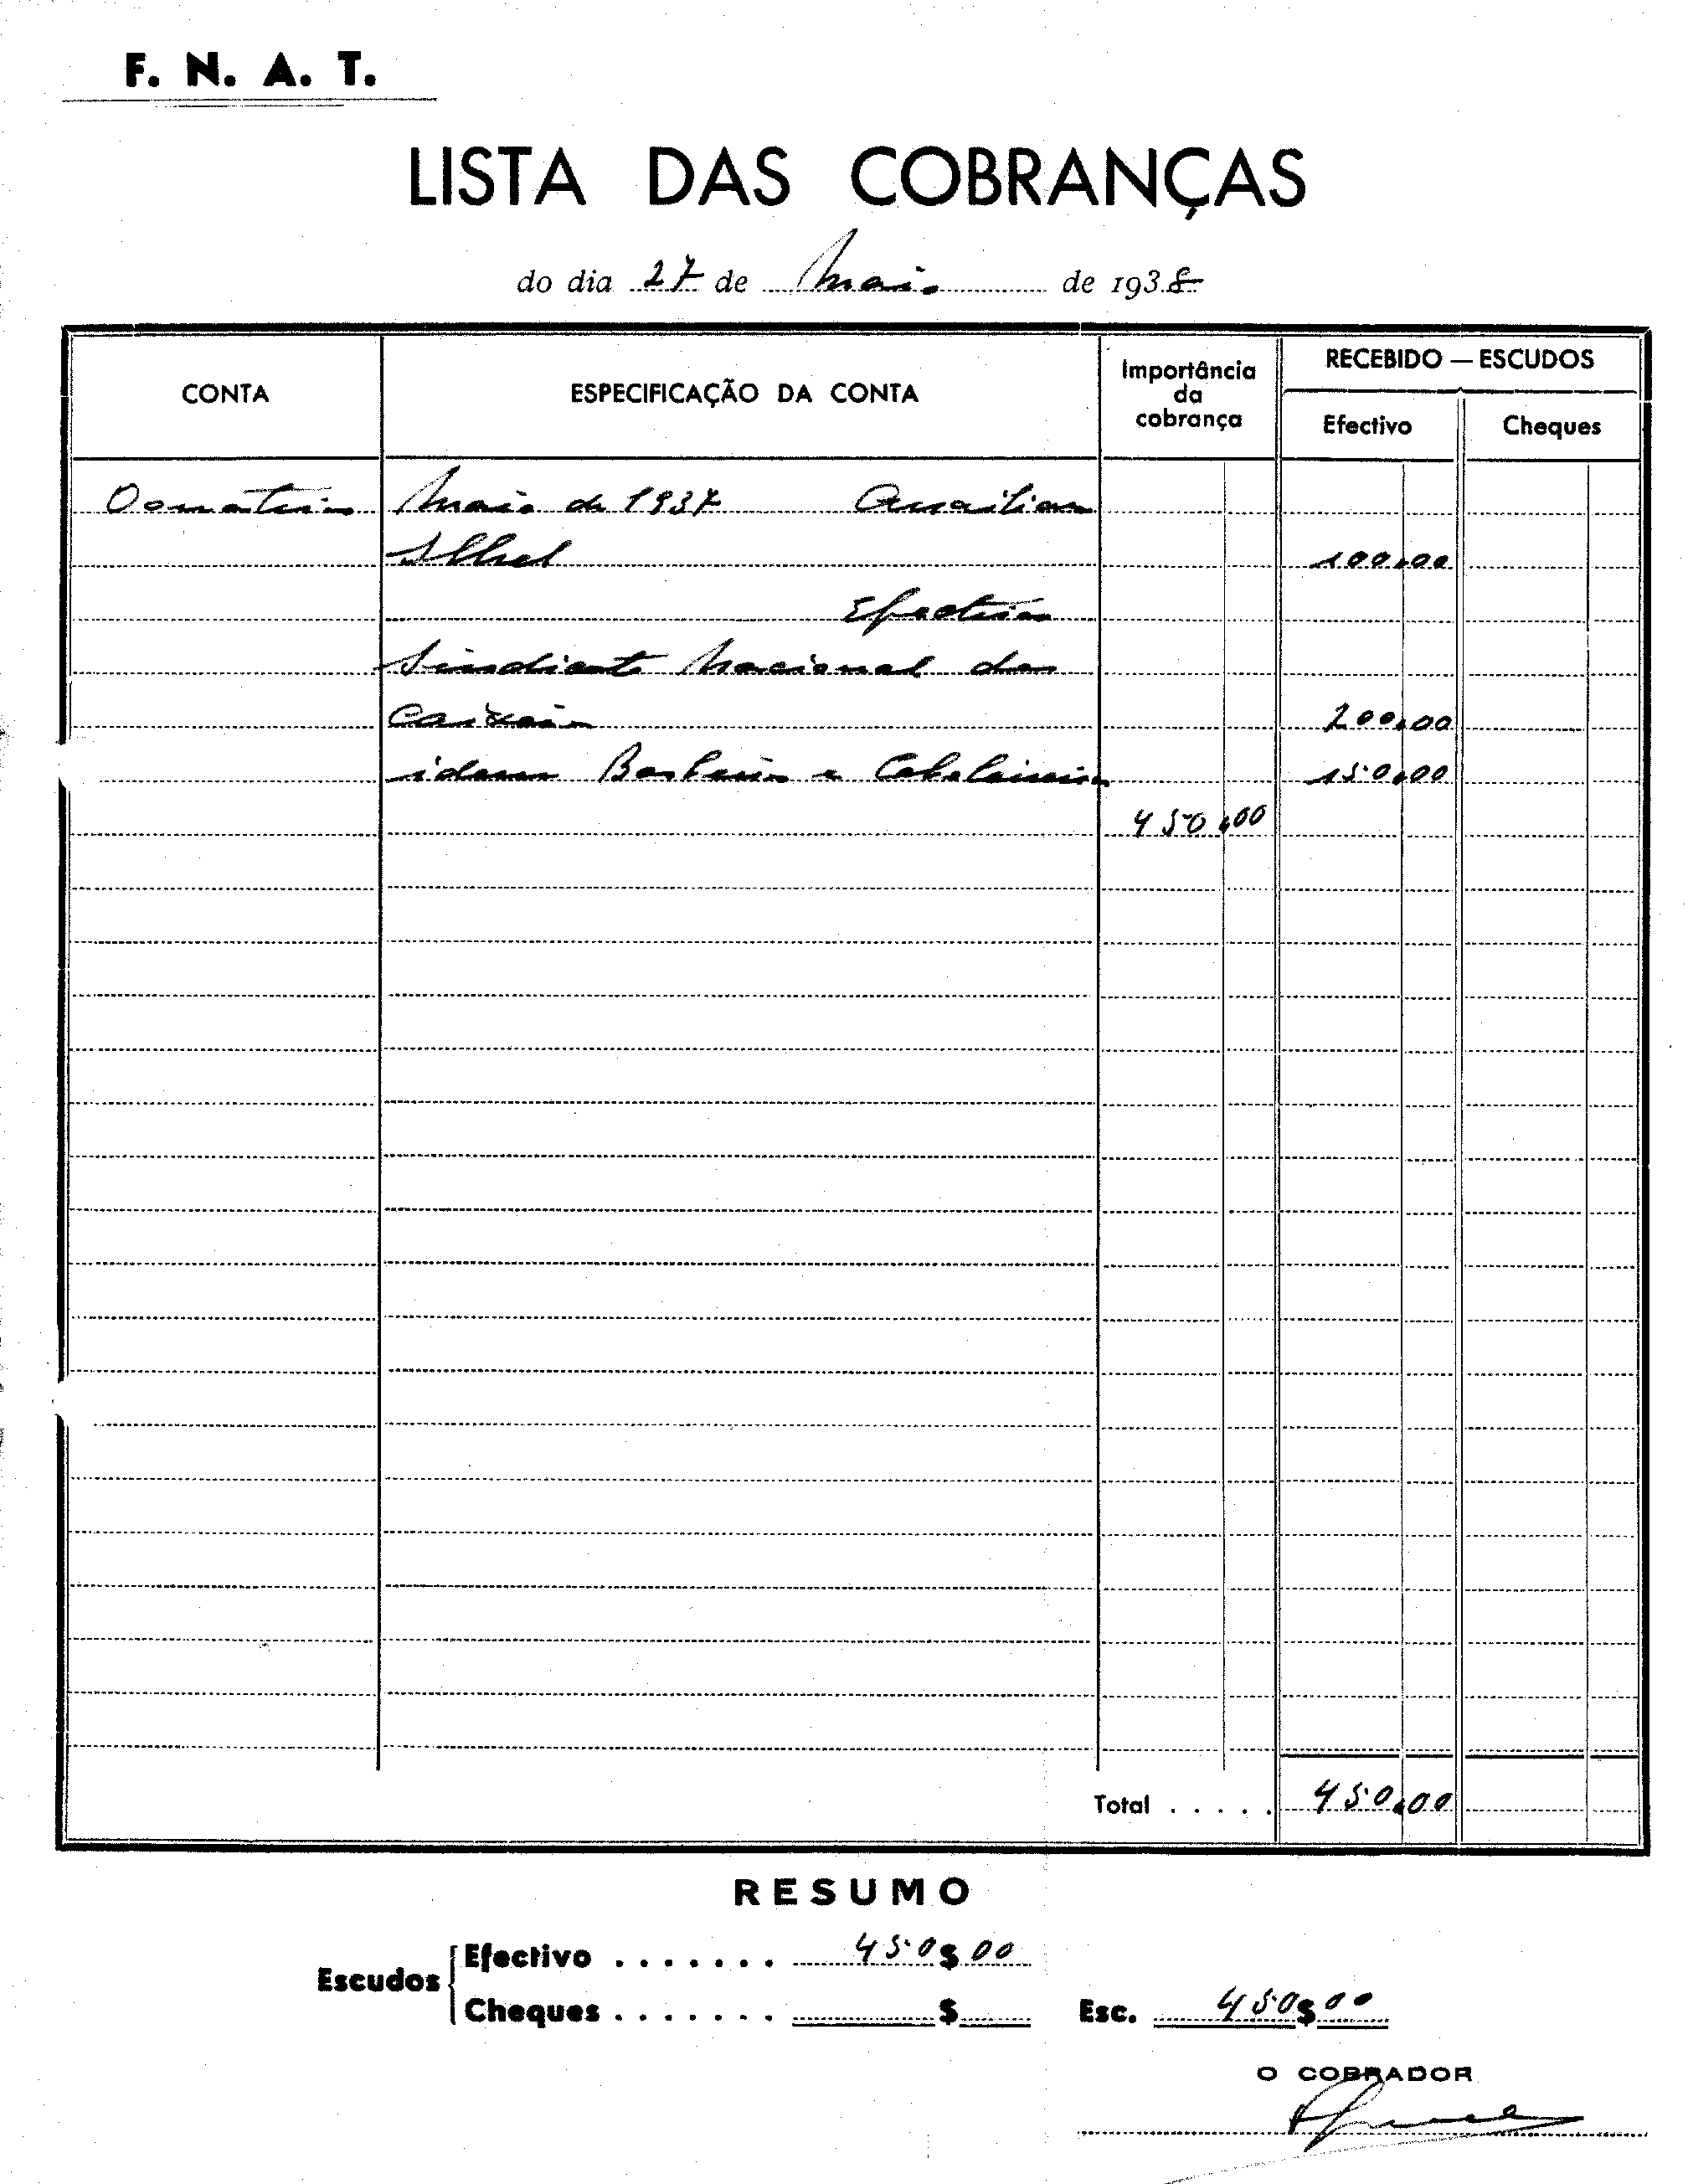 F. N. A. T.
LISTA DAS COBRANÇAS
do dia 27 de Maio de 1938
CONTA
ESPECIFICAÇÃO DA CONTA
Importância
da
cobrança
RECEBIDO — ESCUDOS
Efectivo
Cheques
Donativos Maio de 1937 Auxiliar
100,00
Efectivos
Sindicato Nacional dos
Caixeiros 200,00
idem Barbeiros e Cabeleireiros 150,00
450,00
Total . . . . . 450,00
RESUMO
Escudos
Efectivo . . . . . . . 450$00
Cheques . . . . . . . $
Esc. 450$00
O COBRADOR